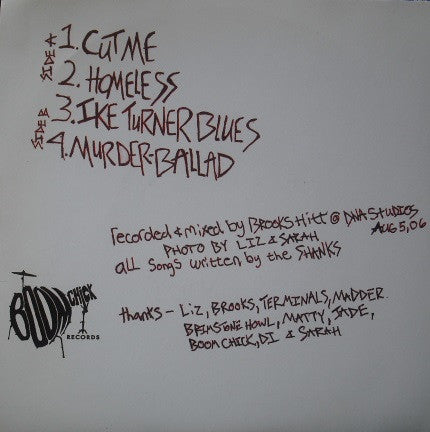 SIDE A
1. CUT ME
2. HOMELESS
SIDE B
3. IKE TURNER BLUES
4. MURDER-BALLAD
recorded & mixed by BROOKS Hitt @ DNA STUDIOS
AUG 5, 06
PHOTO BY LIZ & SARAH
all Songs written by the SHANKS
BOOM CHICK
RECORDS
thanks - Liz, BROOKS, TERMINALS, MADDER.
BRIMSTONE HOWL, MATTY, JADE,
BOOM CHICK, DI & SARAH